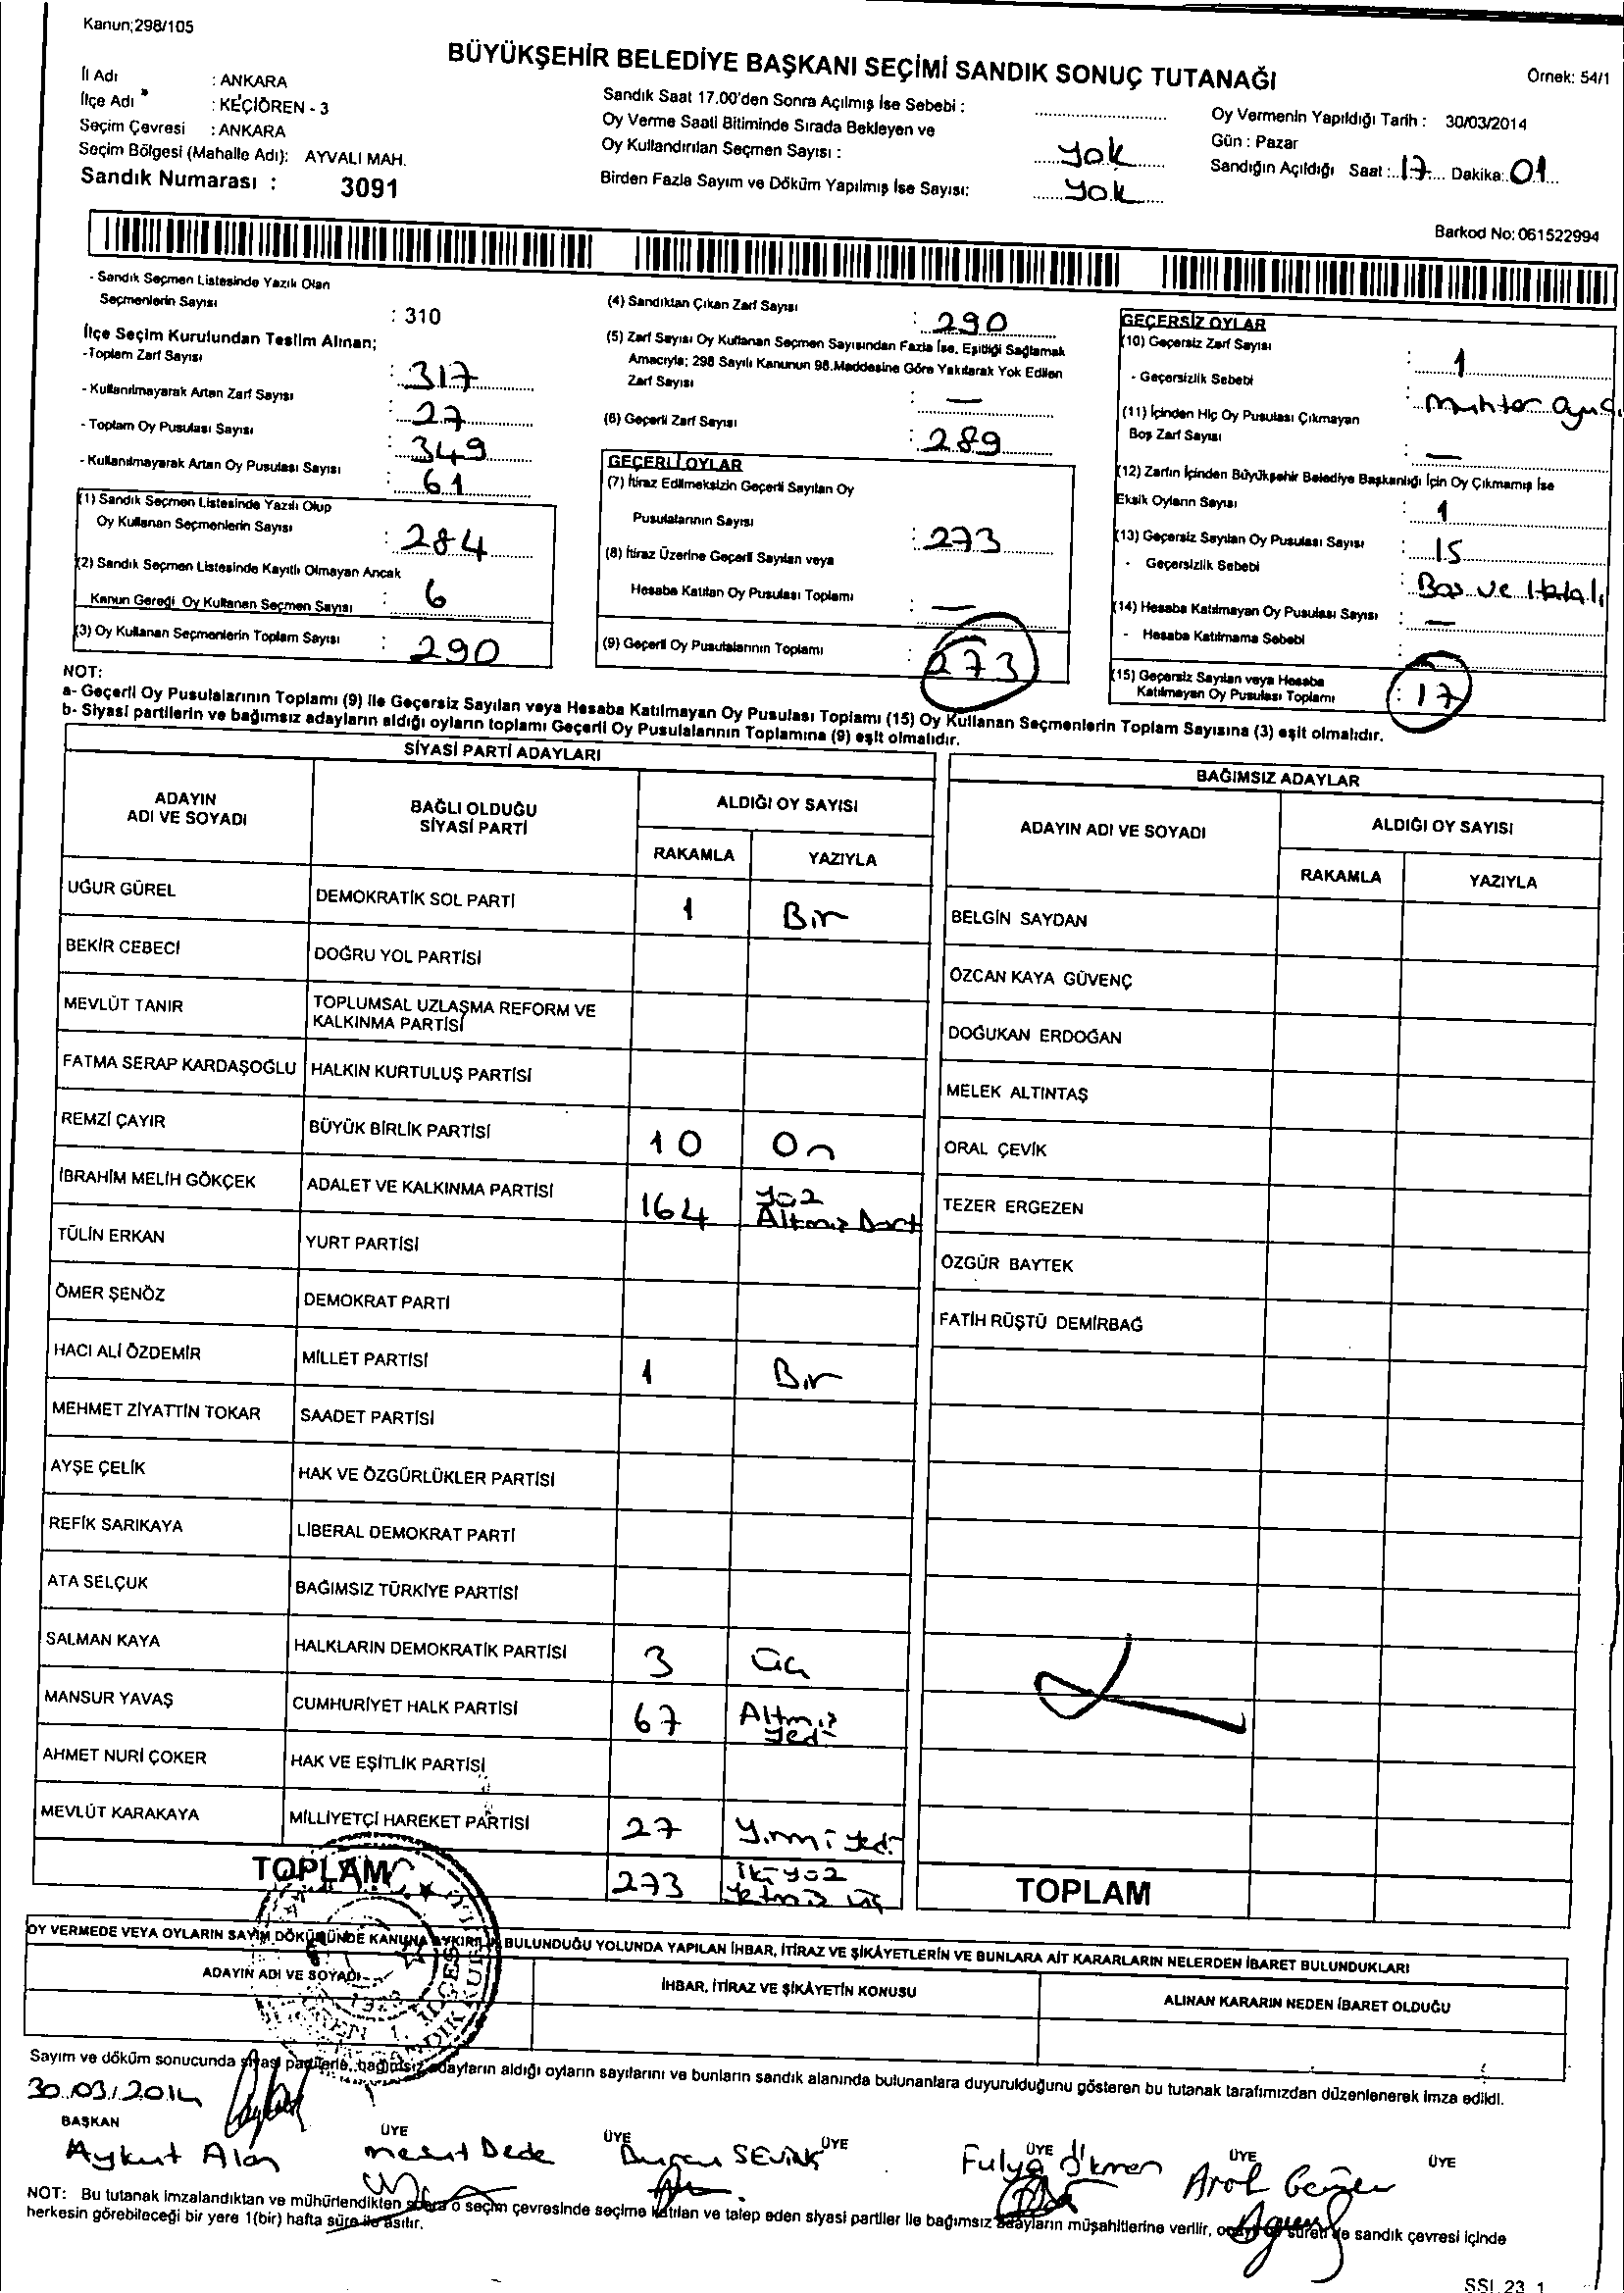 Kanun;298/105
BÜYÜKŞEHİR BELEDİYE BAŞKANI SEÇİMİ SANDIK SONUÇ TUTANAĞI
Örnek: 54/1
İl Adı : ANKARA
İlçe Adı : KEÇİÖREN - 3
Seçim Çevresi : ANKARA
Seçim Bölgesi (Mahalle Adı): AYVALI MAH.
Sandık Numarası : 3091
Sandık Saat 17.00'den Sonra Açılmış İse Sebebi :
Oy Verme Saati Bitiminde Sırada Bekleyen ve
Oy Kullandırılan Seçmen Sayısı : yok
Birden Fazla Sayım ve Döküm Yapılmış İse Sayısı: yok
Oy Vermenin Yapıldığı Tarih : 30/03/2014
Gün : Pazar
Sandığın Açıldığı Saat : 17 Dakika: 01
Barkod No: 061522994
- Sandık Seçmen Listesinde Yazılı Olan
Seçmenlerin Sayısı : 310
İlçe Seçim Kurulundan Teslim Alınan;
-Toplam Zarf Sayısı : 317
- Kullanılmayarak Artan Zarf Sayısı : 27
- Toplam Oy Pusulası Sayısı : 349
- Kullanılmayarak Artan Oy Pusulası Sayısı : 61
(1) Sandık Seçmen Listesinde Yazılı Olup
Oy Kullanan Seçmenlerin Sayısı : 284
(2) Sandık Seçmen Listesinde Kayıtlı Olmayan Ancak
Kanun Gereği Oy Kullanan Seçmen Sayısı : 6
(3) Oy Kullanan Seçmenlerin Toplam Sayısı : 290
(4) Sandıktan Çıkan Zarf Sayısı : 290
(5) Zarf Sayısı Oy Kullanan Seçmen Sayısından Fazla İse, Eşitliği Sağlamak
Amacıyla; 298 Sayılı Kanunun 98.Maddesine Göre Yakılarak Yok Edilen
Zarf Sayısı : —
(6) Geçerli Zarf Sayısı : 289
GEÇERLİ OYLAR
(7) İtiraz Edilmeksizin Geçerli Sayılan Oy
Pusulalarının Sayısı : 273
(8) İtiraz Üzerine Geçerli Sayılan veya
Hesaba Katılan Oy Pusulası Toplamı : —
(9) Geçerli Oy Pusulalarının Toplamı : 273
GEÇERSİZ OYLAR
(10) Geçersiz Zarf Sayısı : 1
- Geçersizlik Sebebi : Muhtar
(11) İçinden Hiç Oy Pusulası Çıkmayan
Boş Zarf Sayısı : —
(12) Zarfın İçinden Büyükşehir Belediye Başkanlığı İçin Oy Çıkmamış İse
Eksik Oyların Sayısı : 1
(13) Geçersiz Sayılan Oy Pusulası Sayısı : 15
- Geçersizlik Sebebi : Boş ve Hatalı
(14) Hesaba Katılmayan Oy Pusulası Sayısı : —
- Hesaba Katılmama Sebebi :
(15) Geçersiz Sayılan veya Hesaba
Katılmayan Oy Pusulası Toplamı : 17
NOT:
a- Geçerli Oy Pusulalarının Toplamı (9) ile Geçersiz Sayılan veya Hesaba Katılmayan Oy Pusulası Toplamı (15) Oy Kullanan Seçmenlerin Toplam Sayısına (3) eşit olmalıdır.
b- Siyasi partilerin ve bağımsız adayların aldığı oyların toplamı Geçerli Oy Pusulalarının Toplamına (9) eşit olmalıdır.
SİYASİ PARTİ ADAYLARI
ADAYIN
ADI VE SOYADI
BAĞLI OLDUĞU
SİYASİ PARTİ
ALDIĞI OY SAYISI
RAKAMLA YAZIYLA
UĞUR GÜREL DEMOKRATİK SOL PARTİ 1 Bir
BEKİR CEBECİ DOĞRU YOL PARTİSİ
MEVLÜT TANIR TOPLUMSAL UZLAŞMA REFORM VE
KALKINMA PARTİSİ
FATMA SERAP KARDAŞOĞLU HALKIN KURTULUŞ PARTİSİ
REMZİ ÇAYIR BÜYÜK BİRLİK PARTİSİ 10 On
İBRAHİM MELİH GÖKÇEK ADALET VE KALKINMA PARTİSİ 164 yüz
Altmış Dört
TÜLİN ERKAN YURT PARTİSİ
ÖMER ŞENÖZ DEMOKRAT PARTİ
HACI ALİ ÖZDEMİR MİLLET PARTİSİ 1 Bir
MEHMET ZİYATTİN TOKAR SAADET PARTİSİ
AYŞE ÇELİK HAK VE ÖZGÜRLÜKLER PARTİSİ
REFİK SARIKAYA LİBERAL DEMOKRAT PARTİ
ATA SELÇUK BAĞIMSIZ TÜRKİYE PARTİSİ
SALMAN KAYA HALKLARIN DEMOKRATİK PARTİSİ 3 üç
MANSUR YAVAŞ CUMHURİYET HALK PARTİSİ 67 Altmış
yedi
AHMET NURİ ÇOKER HAK VE EŞİTLİK PARTİSİ
MEVLÜT KARAKAYA MİLLİYETÇİ HAREKET PARTİSİ 27 yirmi yedi
TOPLAM 273 iki yüz
yetmiş üç
BAĞIMSIZ ADAYLAR
ADAYIN ADI VE SOYADI
ALDIĞI OY SAYISI
RAKAMLA YAZIYLA
BELGİN SAYDAN
ÖZCAN KAYA GÜVENÇ
DOĞUKAN ERDOĞAN
MELEK ALTINTAŞ
ORAL ÇEVİK
TEZER ERGEZEN
ÖZGÜR BAYTEK
FATİH RÜŞTÜ DEMİRBAĞ
TOPLAM
OY VERMEDE VEYA OYLARIN SAYIM DÖKÜMÜNDE KANUNA AYKIRILIK BULUNDUĞU YOLUNDA YAPILAN İHBAR, İTİRAZ VE ŞİKÂYETLERİN VE BUNLARA AİT KARARLARIN NELERDEN İBARET BULUNDUKLARI
ADAYIN ADI VE SOYADI
İHBAR, İTİRAZ VE ŞİKÂYETİN KONUSU
ALINAN KARARIN NEDEN İBARET OLDUĞU
Sayım ve döküm sonucunda siyasi partilerle, bağımsız adayların aldığı oyların sayılarını ve bunların sandık alanında bulunanlara duyurulduğunu gösteren bu tutanak tarafımızdan düzenlenerek imza edildi.
30.03.2014
BAŞKAN ÜYE ÜYE ÜYE ÜYE ÜYE ÜYE
Aykut Alan Mesut Dede SEVİNÇ Fulya
NOT: Bu tutanak imzalandıktan ve mühürlendikten sonra o seçim çevresinde seçime katılan ve talep eden siyasi partiler ile bağımsız adayların müşahitlerine verilir, onaylı bir sureti de sandık çevresi içinde
herkesin görebileceği bir yere 1(bir) hafta süre ile asılır.
SSI. 23 1